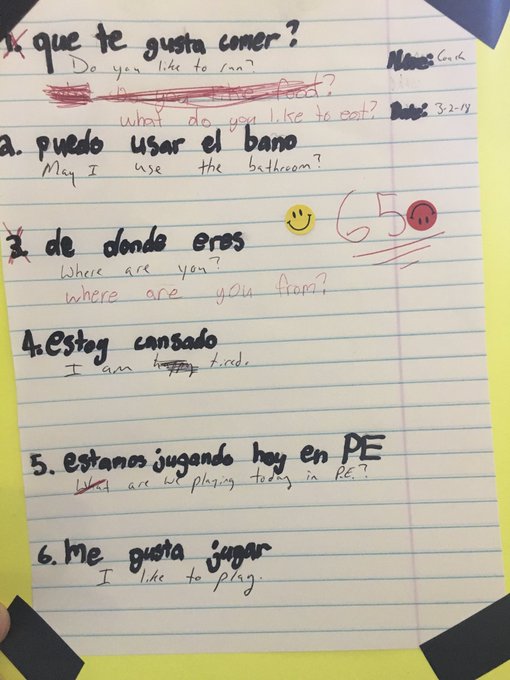 1. que te gusta comer?
Do you like to run?
Name: Coach
what do you like to eat?
Date: 3-2-18
2. puedo usar el bano
May I use the bathroom?
65
3. de donde eres
Where are you?
where are you from?
4. estoy cansado
I am happy tired.
5. estamos jugando hoy en PE
What are we playing today in P.E.?
6. me gusta jugar
I like to play.